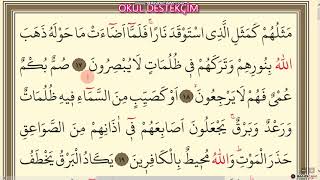 OKUL DESTEKÇİM
مَثَلُهُمْ كَمَثَلِ الَّذِي اسْتَوْقَدَ نَارًا فَلَمَّٓا اَضَٓاءَتْ مَا حَوْلَهُ ذَهَبَ
اللّٰهُ بِنُورِهِمْ وَتَرَكَهُمْ فِي ظُلُمَاتٍ لَا يُبْصِرُونَ ١٧ صُمٌّ بُكْمٌ
عُمْيٌ فَهُمْ لَا يَرْجِعُونَ ١٨ اَوْ كَصَيِّبٍ مِنَ السَّمَٓاءِ فِيهِ ظُلُمَاتٌ
وَرَعْدٌ وَبَرْقٌ يَجْعَلُونَ اَصَابِعَهُمْ فِٓي اٰذَانِهِمْ مِنَ الصَّوَاعِقِ
حَذَرَ الْمَوْتِ وَاللّٰهُ مُحِيطٌ بِالْكَافِرِينَ ١٩ يَكَادُ الْبَرْقُ يَخْطَفُ